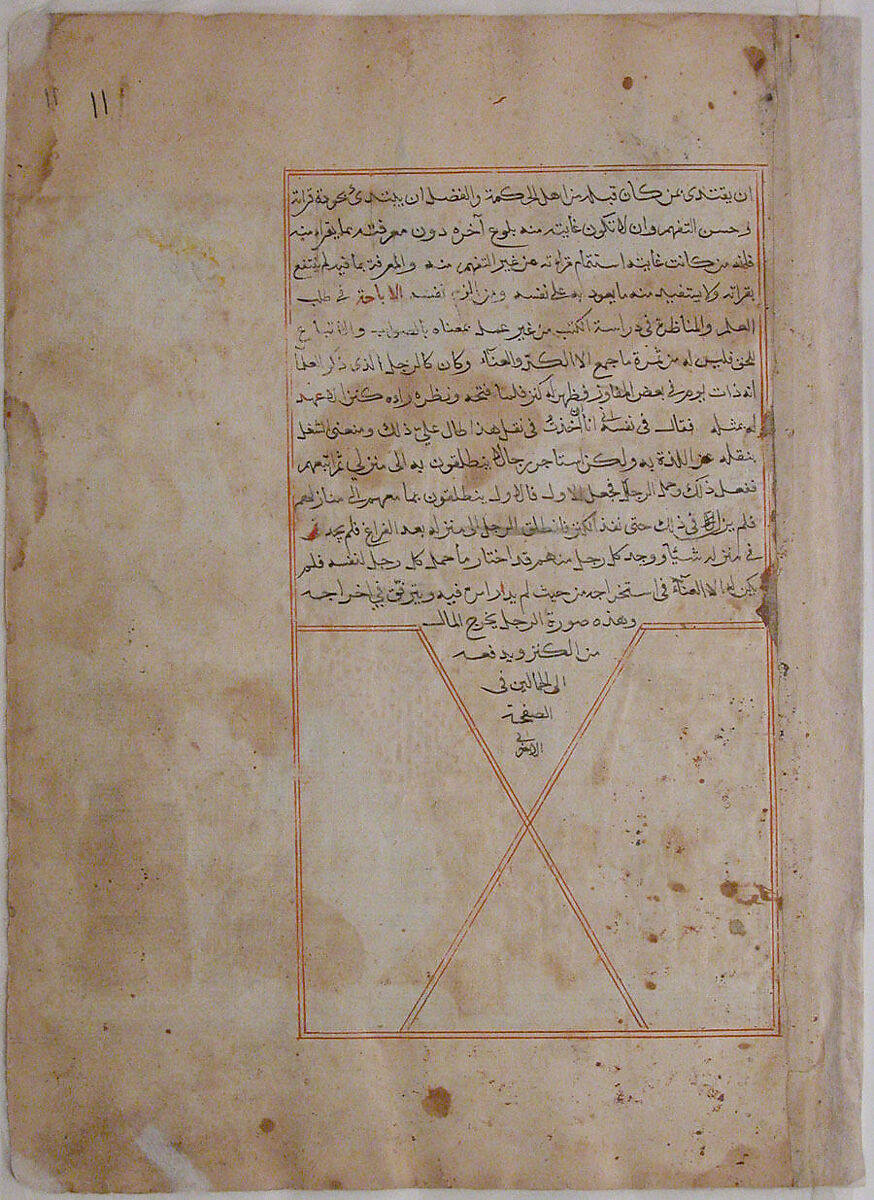 ١١ ١١
ان يقتدى بمن كان قبله من اهل الحكمة والفضل ان يبتدئ بجودة قراته
فى حسن التفهم وان لا تكون غايته منه بلوغ آخره دون معرفته بما يقراه منه
فانه من كانت غايته استتمام قراته من غير التفهم منه والمعرفة بما فيه لم ينتفع
بقراته ولا يستفيد منه ما يعود به على نفسه ومن الزم نفسه الاباحة فى طلب
العلم والمناظرة فى دراسة الكتب من غير عمل بمعناه بالصواب والاتباع
للحق فليس له من ثمرة ما جمع الا الكد والعنآء وكان كالرجل الذى ذكر العلمآ
انه ذات يوم فى بعض المفاوز فظهر له كنز فلما فتحه ونظره راه كنز لا عهد
له بمثله فقال فى نفسه انى ان اخذت فى نقل هذا طال على ذلك ومنعنى الشغل
بنقله عن اللذة به ولكن استاجر رجالا ينطلقون به الى منزلى ثم اتبعهم
ففعل ذلك وحمل الرجال فجعل الاول فالاول ينطلقون بما معهم الى منازلهم
فلم يزل فى ذلك حتى نفذ الكنز فانطلق الرجل الى منزله بعد الفراغ فلم يجد
فى منزله شيأ ووجد كل رجل منهم قد اختار ما حمل كل رجل لنفسه فلم
يكن له الا العنآء فى استخراجه من حيث لم يدارس فيه ويترفق فى اخراجه
وهذه صورة الرجل يخرج المال
من الكنز ويدفعه
الى الحمالين فى
الصفحة
الاخرى